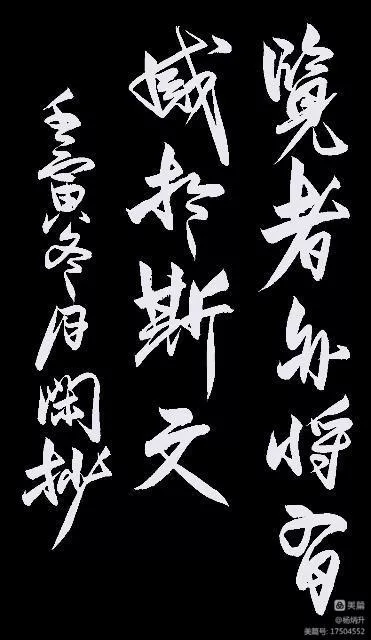 覽者亦將有
感於斯文
壬寅冬月抄
美篇
@杨炳升
美篇号: 17504552